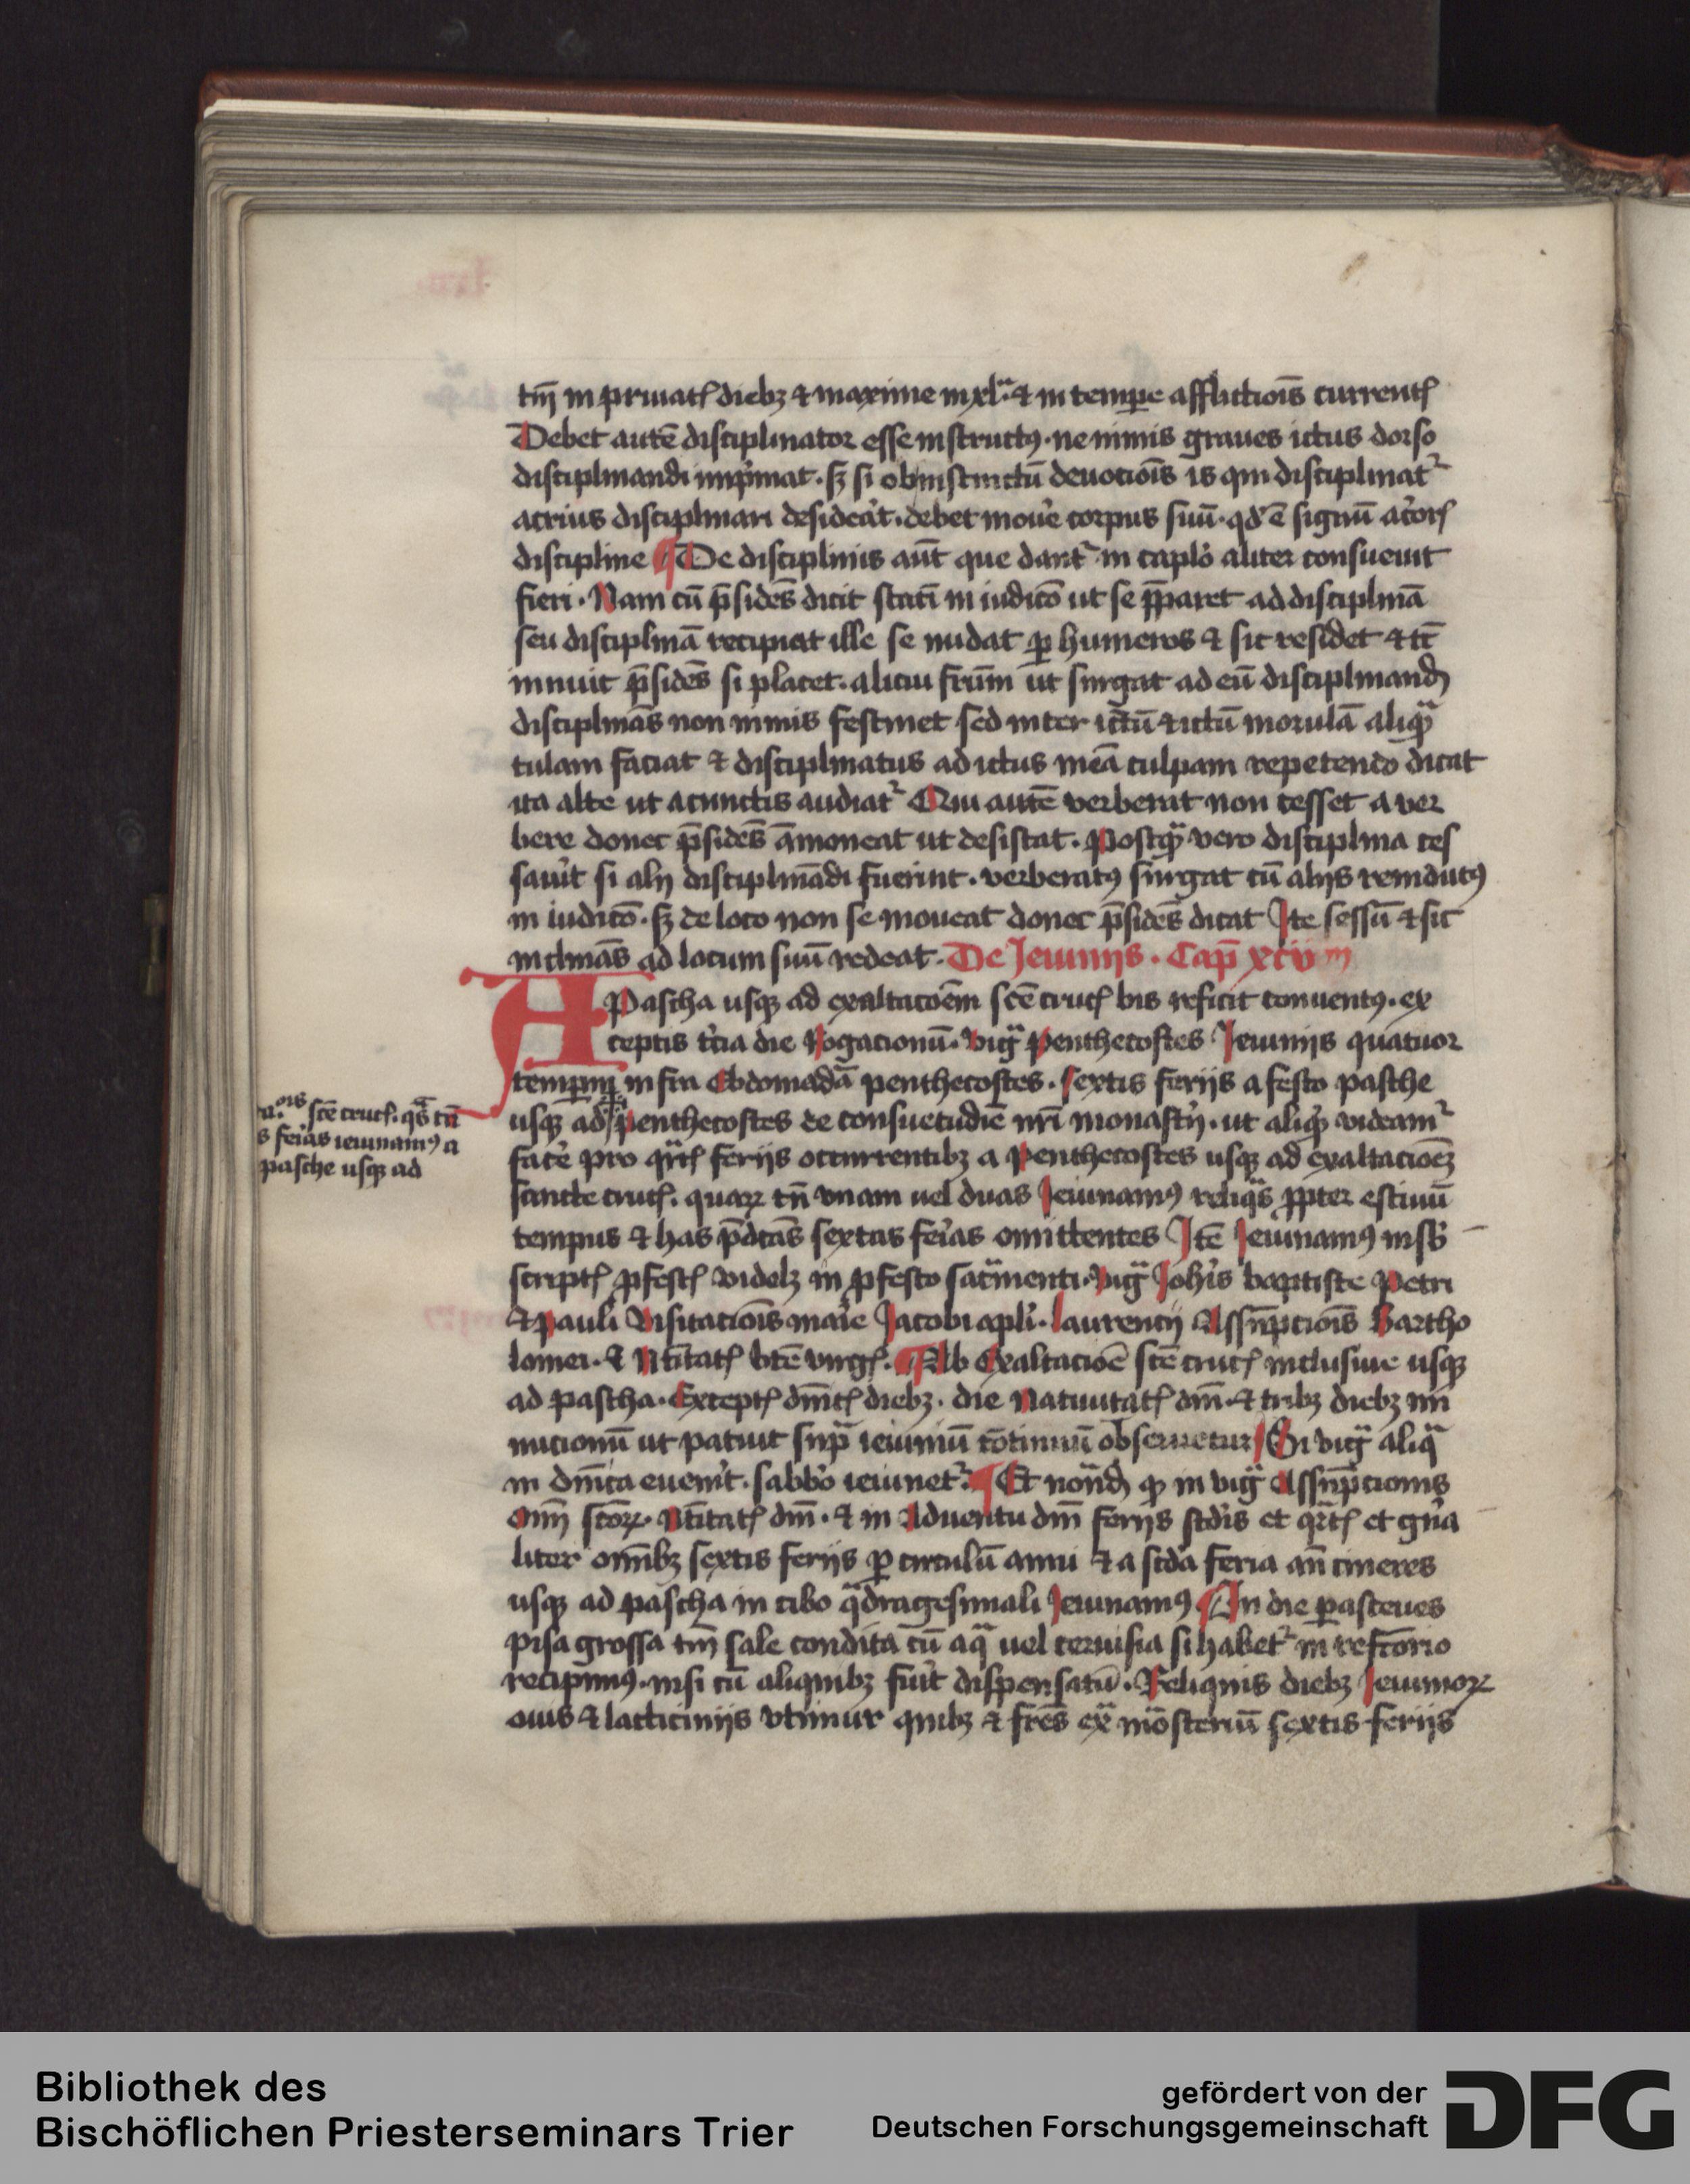 tm̄ in priuatꝭ diebꝫ ⁊ maxime in xl.ᵃ ⁊ in tempe afflictiois currentꝭ
Debet autē disciplinator esse instructꝰ. ne nimis graues ictus dorso
disciplinandi imp̍mat. sꝫ si ob instinctū deuotiois is qui disciplinat᷑
acrius disciplinari desideat. debet moue corpus suū. qd̍ ē signū acor̍
discipline ¶ De disciplinis aut̄ que dant᷑ in caplo aliter consueuit
fieri. Nam cū p̄sidēs dicit stati in iudico ut se ꝑparet ad disciplinā
seu disciplinā recipiat ille se nudat ꝑ humeros ⁊ sic residet ⁊ tc̄
innuit p̄sidēs si placet. alicui frūm ut surgat ad eū disciplinand̄
disciplinās non nimis festinet sed inter ictū ⁊ ictū morulā aliqᵃ̄
tulam faciat ⁊ disciplinatus ad ictus meā culpam repetendo dicat
ita alte ut a cunctis audiat᷑ Qui autē verberat non cesset a ver
bere donec p̄sidēs āmoneat ut desistat. Postqᵃ̄ vero disciplina ces
sauit si alij disciplinādi fuerint. verberatꝰ surgat cū alijs reindutꝰ
in iudico. sꝫ de loco non se moueat donec p̄sidēs dicat Ite sessū ⁊ sic
inclinās ad locum suū redeat. De Jeiunijs. Cap̄ xcviij
A Pascha usqꝫ ad exaltacoēm scē crucꝭ bis reficit conuentꝰ. ex
ceptis tcia die Rogacionū. vigᵃ̄ penthecostes Jeiunijs quatuor
temporum infra Ebdomadā penthecostes. sextis ferijs a festo pasche
usqꝫ ad penthecostes de consuetudiē nri monastij. ut aliqᵃ̄ videam᷑
face pro qᵃ̄rtꝭ ferijs occurrentibꝫ a Penthecostes usqꝫ ad exaltacioēꝫ
sancte crucꝭ. quaꝝ tn̄ vnam uel duas Jeiunamꝰ reliqᵃs ꝓpter estiuū
tempus ⁊ has p̄dcās sextas feias omittentes Itē Jeiunamꝰ insb̄
scriptꝭ ꝓfestꝭ videlꝫ in ꝓfesto sacᵃmenti. vigᵃ̄ Joh̄is baptiste Petri
⁊ pauli Visitaciois marie Jacobi apli. laurencij Assūptiois Bartho
lomei. ⁊ Ntitatꝭ bte virgꝭ. ¶ Ab Exaltacioē scē crucꝭ inclusiue usqꝫ
ad pascha. Exceptꝭ dn̄icꝭ diebꝫ. die Natiuitatꝭ dn̄i. ⁊ tribꝫ diebꝫ mi
nucionū ut patuit supᵃ ieiuniū cōtinuū obseruetur Si vigᵃ̄ aliqᵃ
in dn̄ica euenit. sabbo ieiunet᷑. ¶ Et notand̄ ꝙ in vigᵃ̄ Assūptionis
om̄ scōꝝ. Ntitatꝭ dn̄i. ⁊ in Aduentu dn̄i ferijs scdis et qᵃrtꝭ et gn̄a
liter omībꝫ sextis ferijs ꝑ circulū anni ⁊ a scda feria an̄ cineres
usqꝫ ad pascha in cibo qᵃdragesimali Jeiunamꝰ In die pasceues
pisa grossa tm̄ sale condita cū aqᵃ uel ceruisia si habet᷑ in refcōrio
recipimꝰ. nisi cū aliquibꝫ fuit dispensatū. Reliquis diebꝫ Jeiunioꝝ
ouis ⁊ lacticinijs vtimur quibꝫ ⁊ frēs exᵃ mōsteriū sextis ferijs
scē crucꝭ. qᵃs tn̄
s feias ieiunamꝰ a
pasche usqꝫ ad
Bibliothek des
Bischöflichen Priesterseminars Trier
gefördert von der
Deutschen Forschungsgemeinschaft
DFG